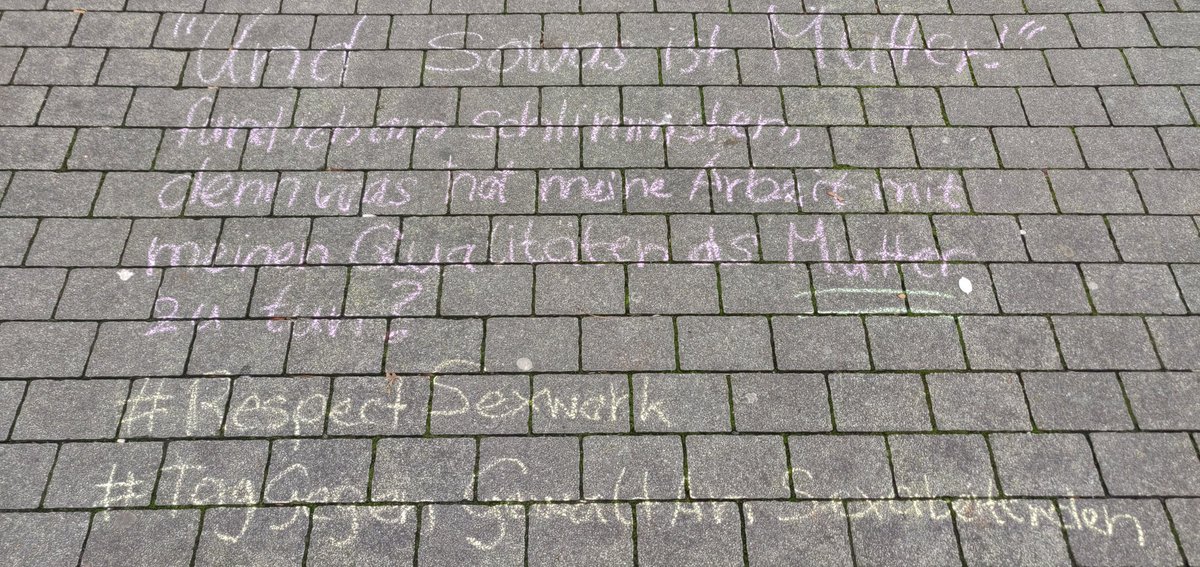 "Und Sowas ist Mutter!"
fand ich am schlimmsten,
denn was hat meine Arbeit mit
meinen Qualitäten als Mutter
zu tun?
#RespectSexwork
#TagGegenGewaltAnSexarbeitenden